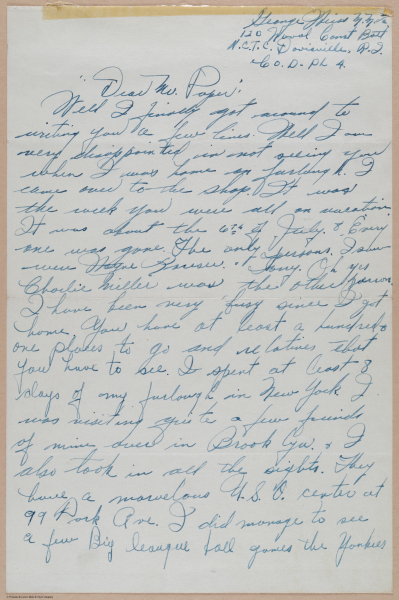 George Weiss
120 Naval Const Batt
N.C.T.C. Davisville, R.I.
Co. D-Pl 4.
"Dear Mr. Paper":
Well I finely got around to
writing you a few lines. Well I am
very disappointed in not seeing you
when I was home on furlough. I
came over to the shop. It was
the week you were all on vacation.
It was about the 6th of July. & Every
one was gone. The only persons I saw
were Wayne & Tony. Oh yes
Charlie Miller was the other person.
I have been very busy since I got
home. You have at least a hundred &
one places to go and relatives that
you have to see. I spent at least 3
days of my furlough in New York I
was visiting quite a few friends
of mine over in Brook Lyn. & I
also took in all the sights. They
have a marvelous U.S.O. center at
99 Park Ave. I did manage to see
a few Big league ball games the Yankees